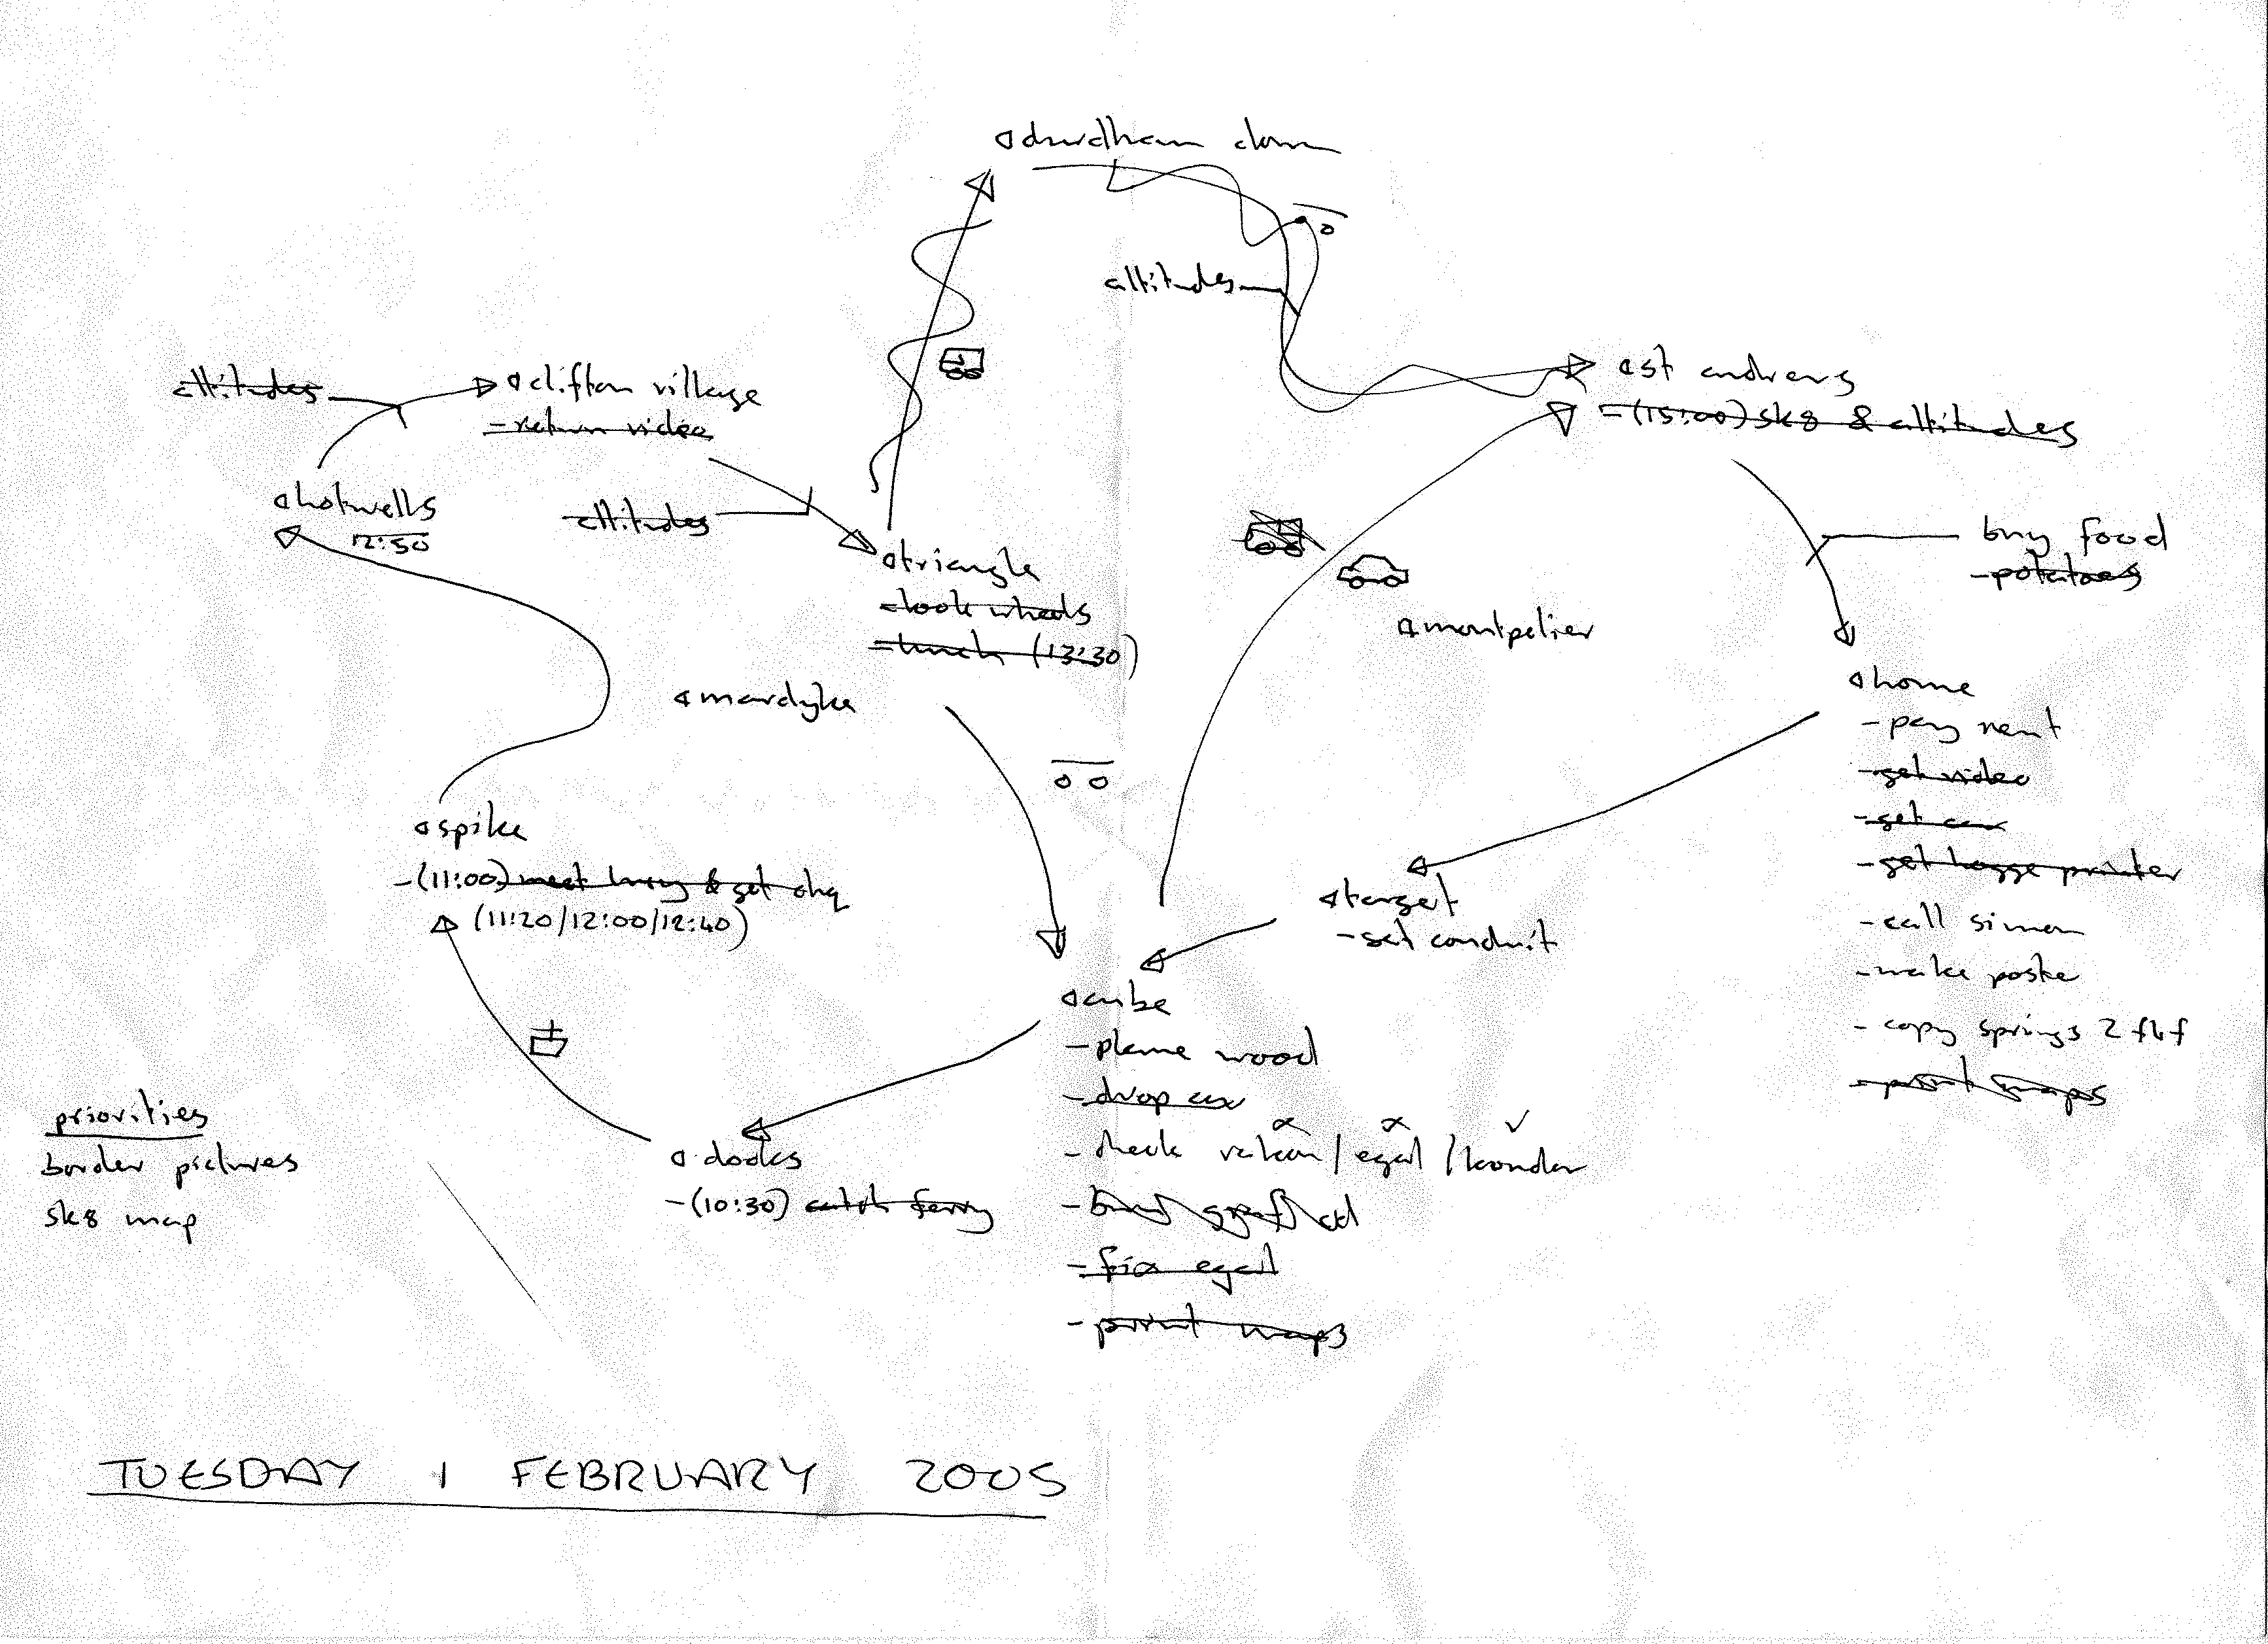 durdham down
altitudes
altitudes
clifton village
-return video
st andrews
-(15:00) sk8 & altitudes
hotwells
12:50
altitudes
triangle
-look wheels
-lunch (13:30)
buy food
-potatoes
montpelier
mardyke
home
-pay rent
-get video
-get car
-get hogge printer
-call simon
-make poste
-copy springs 2 flf
-print maps
spike
-(11:00) meet & get ohq
(11:20/12:00/12:40)
target
-get conduit
cube
-plane wood
-drop car
-check / egail /
-burn graf cd
-fix egail
-print maps
docks
-(10:30) catch ferry
priorities
border pictures
sk8 map
TUESDAY 1 FEBRUARY 2005